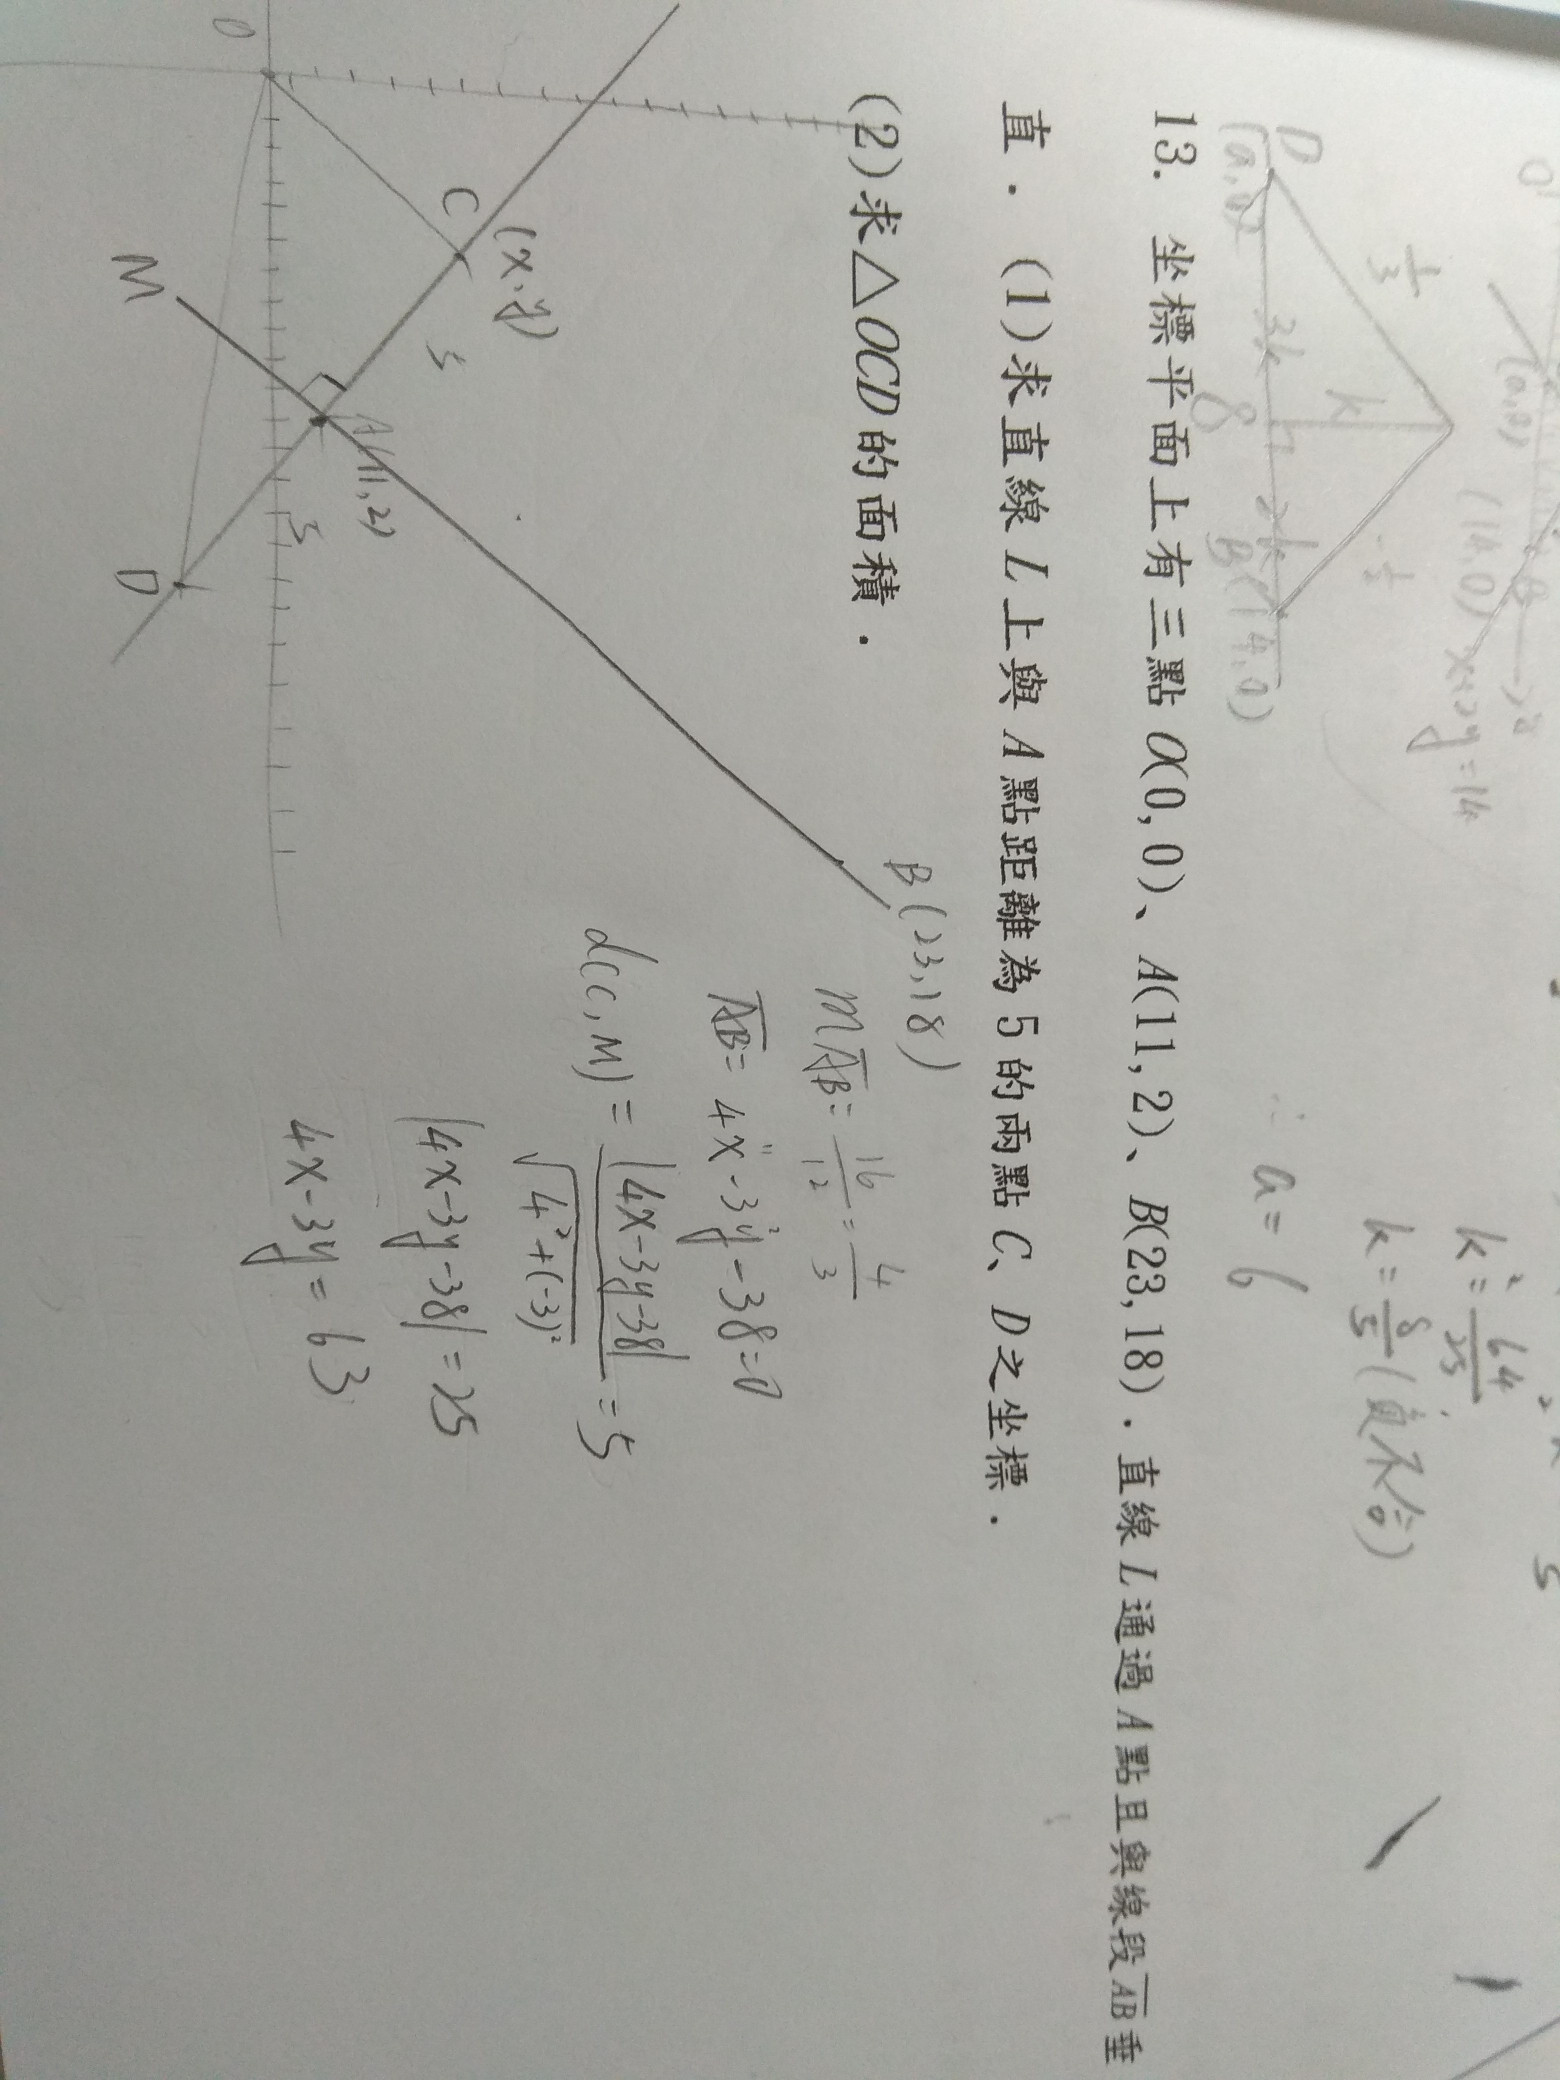 (a,0)
D
3k
8
2k
B(14,0)
k
1/3
-1/2
(14,0)
x+2y=14
k²=64/25
k=8/5(負不合)
∴ a=6
13. 坐標平面上有三點 O(0,0)、A(11,2)、B(23,18). 直線 L 通過 A 點且與線段 AB 垂
直. (1)求直線 L 上與 A 點距離為 5 的兩點 C、D 之坐標.
(2)求△OCD 的面積.
B(23,18)
C
(x,y)
5
A(11,2)
5
O
M
D
mAB=16/12=4/3
AB=4x-3y-38=0
11
2
d(C,M)=|4x-3y-38|/√4²+(-3)²=5
|4x-3y-38|=25
4x-3y=63